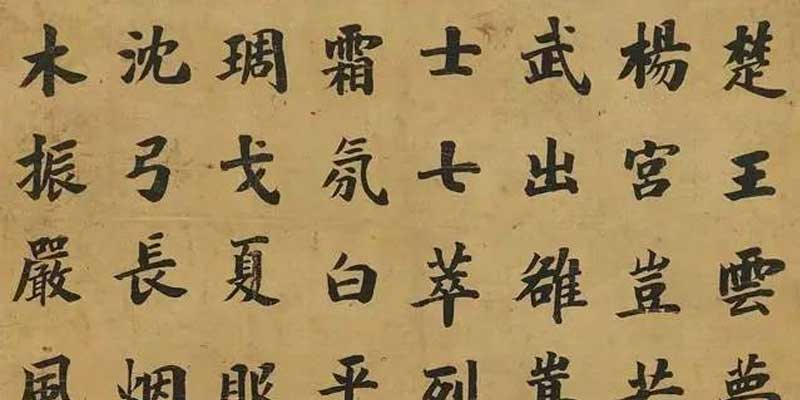 楚王雲夢
楊宮豈若
武出雒嵩
士七萃列
霜氛白平
琱戈夏服
沈弓長烟
木振嚴風